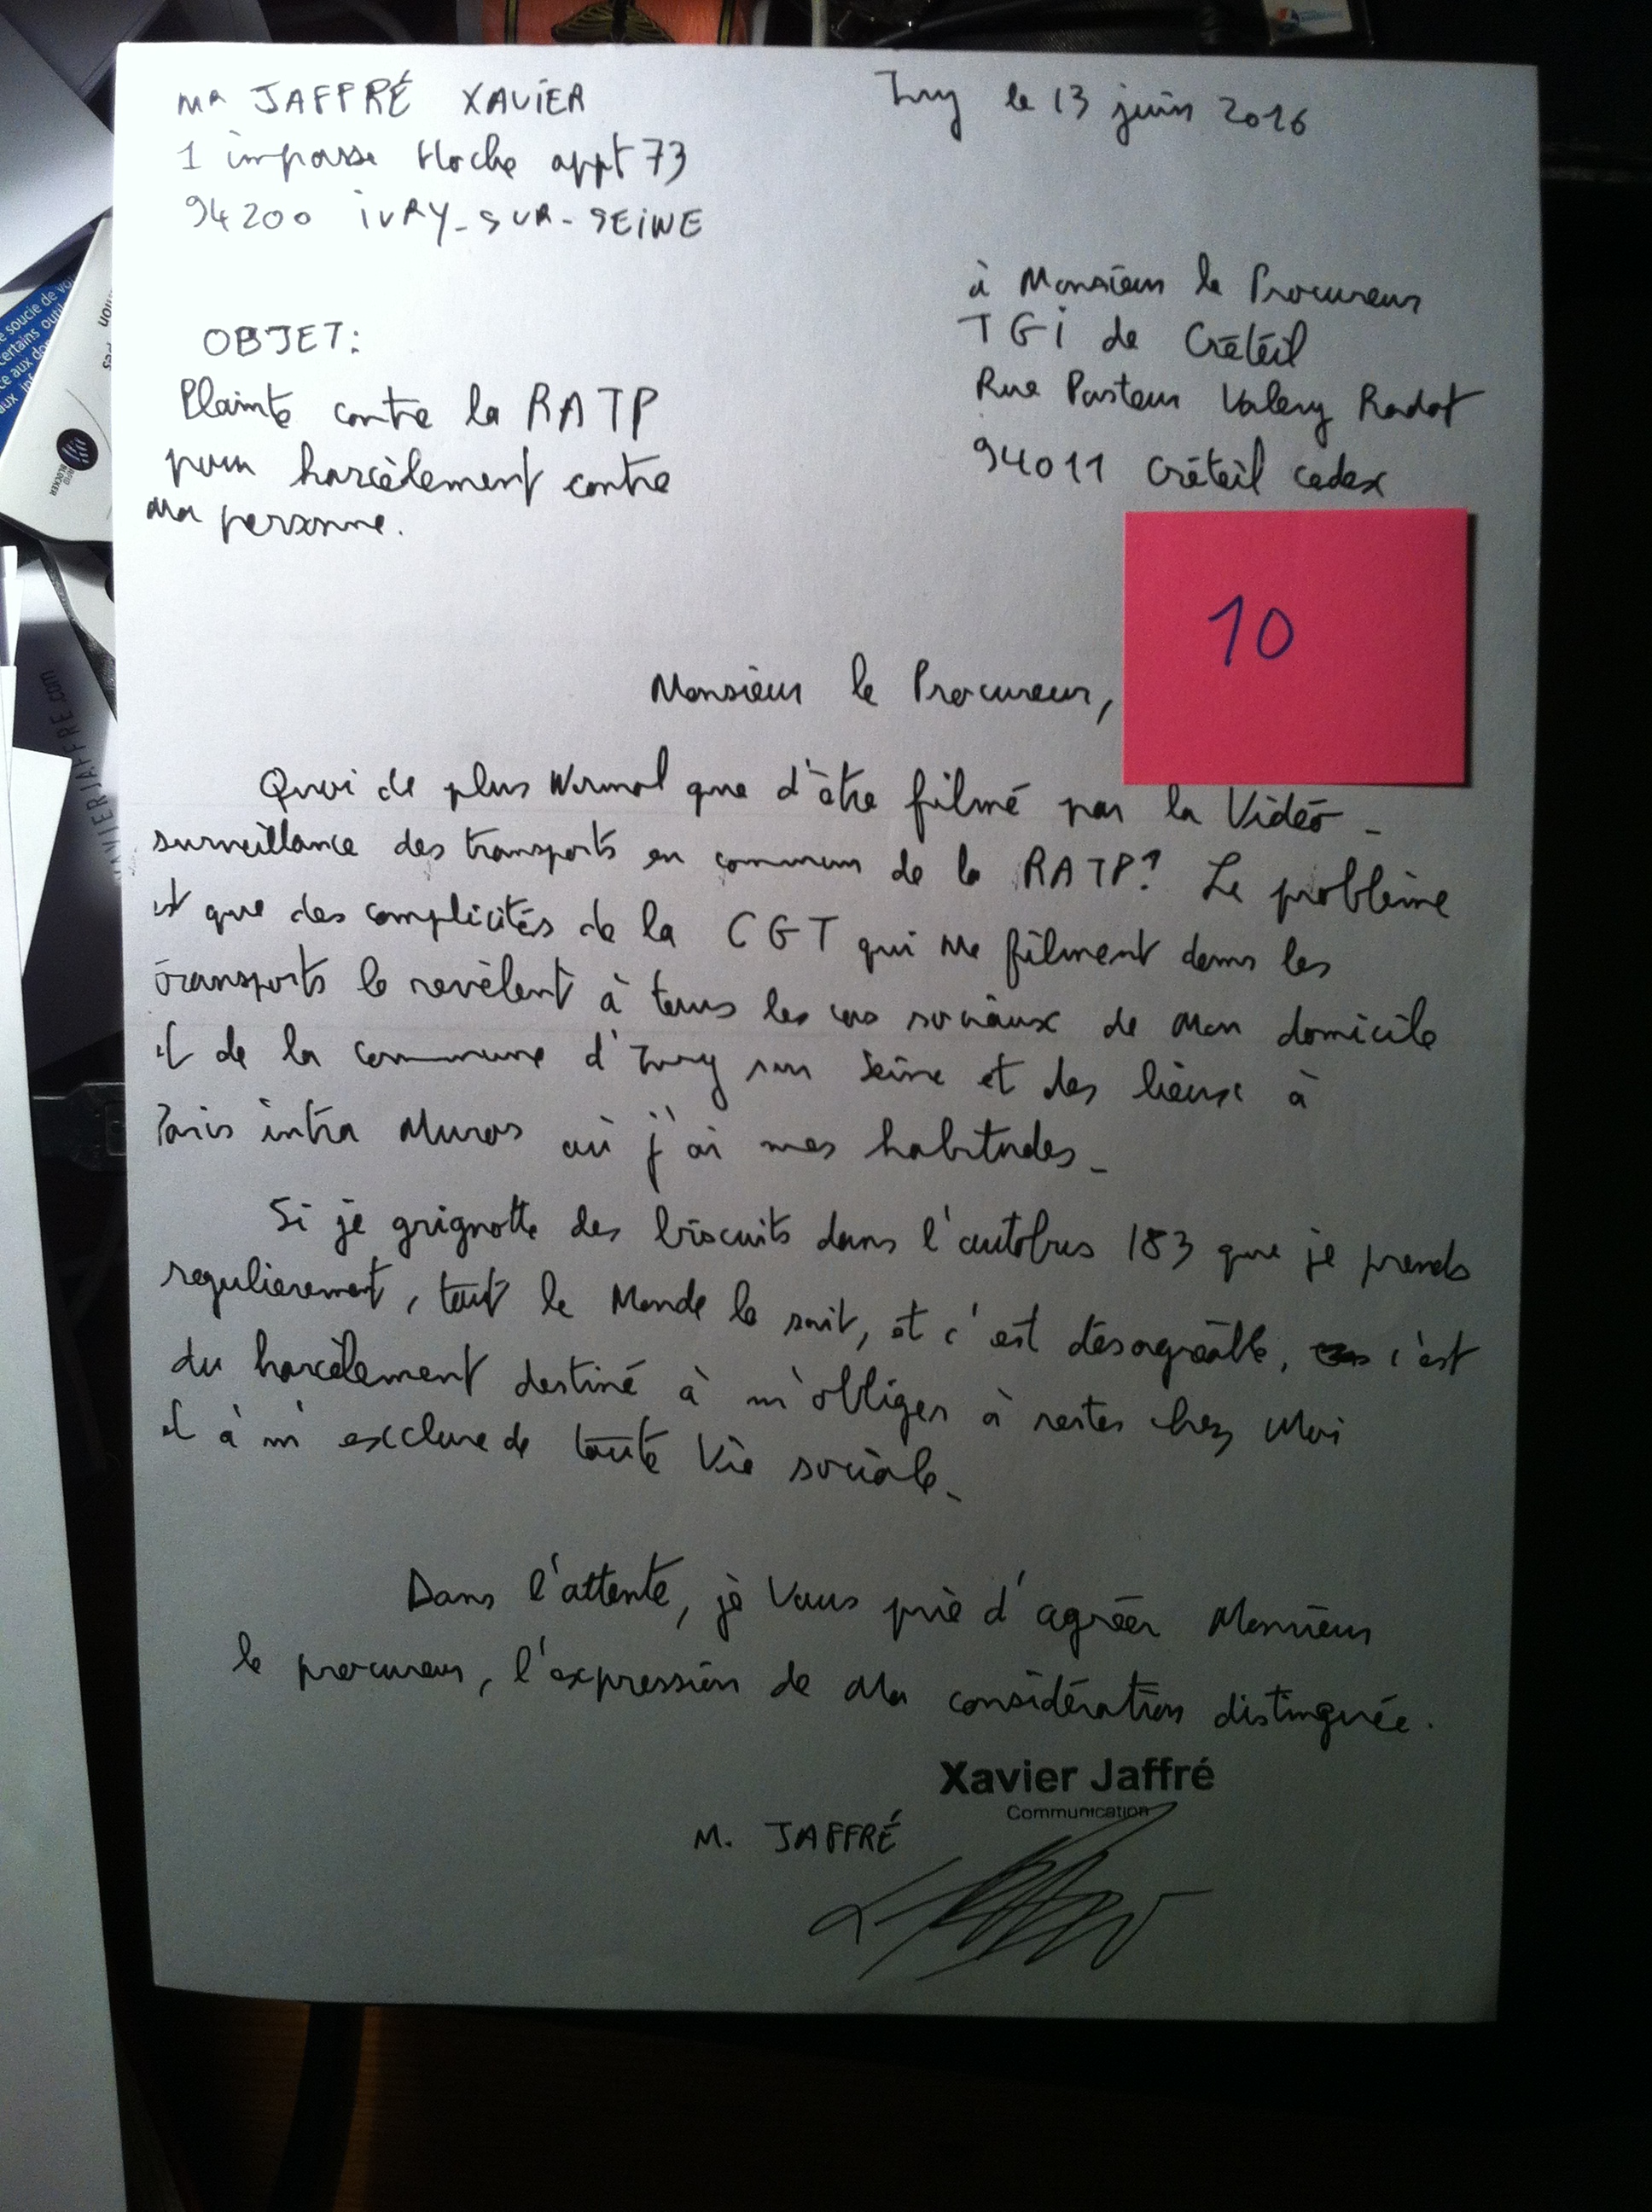 MR JAFFRÉ XAVIER
1 impasse Hoche appt 73
94200 IVRY-SUR-SEINE
Ivry le 13 juin 2016
à Monsieur le Procureur
TGI de Créteil
Rue Pasteur Valery Radot
94011 Créteil cedex
OBJET:
Plainte contre la RATP
pour harcèlement contre
ma personne.
10
Monsieur le Procureur,
Quoi de plus Normal que d'être filmé par la Vidéo-
surveillance des transports en commun de la RATP? Le problème
est que des complicités de la CGT qui me filment dans les
transports le revèlent à tous les cas sociaux de mon domicile
et de la commune d'Ivry sur Seine et des lieux à
Paris intra Muros où j'ai mes habitudes.
Si je grignotte des biscuits dans l'autobus 183 que je prends
regulierement, tout le Monde le sait, et c'est désagréable, c'est
du harcèlement destiné à m'obliger à rester chez Moi
et à m'exclure de toute Vie sociale.
Dans l'attente, je Vous prie d'agréer Monsieur
le procureur, l'expression de Ma considération distinguée.
Xavier Jaffré
Communication
M. JAFFRÉ
XAVIERJAFFRE.com
RFID
BLOCKER